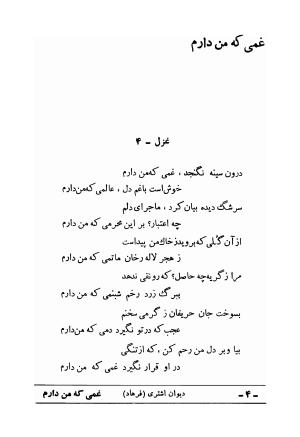 غمی که من دارم
غزل - ۴
درون سینه نگنجد ، غمی که‌من دارم
خوش‌است باغم دل ، عالمی که‌من‌دارم
سرشگ دیده بیان کرد ، ماجرای دلم
چه اعتبار؟ بر این محرمی که من دارم
از آن گلی که بروید ز خاک من پیداست
ز هجر لاله رخان ماتمی که من دارم
مرا ز گریه چه حاصل؟ که رونقی ندهد
ببرگ زرد رخم شبنمی که من دارم
بسوخت جان حریفان ز گرمی سخنم
عجب که در تو نگیرد دمی که من‌دارم
بیا و بر دل من رحم کن ، که از تنگی
در او قرار نگیرد غمی که من دارم
- ۴ - دیوان اشتری (فرهاد) غمی که من دارم